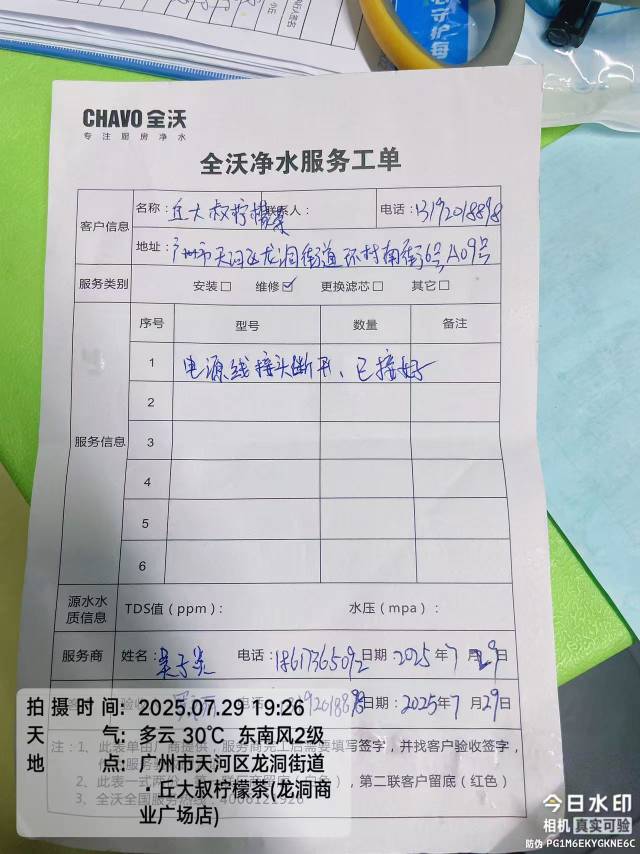 守护每
CHAVO 全沃
专注厨房净水
全沃净水服务工单
客户信息
名称：丘大叔柠檬茶 联系人： 电话：13192018898
地址：广州市天河区龙洞街道环村南街6号A09号
服务类别 安装□ 维修☑ 更换滤芯□ 其它□
服务信息
序号 型号 数量 备注
1 电源线接头断开、已接好
2
3
4
5
6
源水水质信息 TDS值（ppm）： 水压（mpa）：
服务商 姓名： 电话：18617365092 日期：2025年7月29日
日期：2025年7月29日
注：1、此表单由厂商提供，服务商完工后需要填写签字，并找客户验收签字，
2、此表一式两份，第二联客户留底（红色）
3、全沃全国服务热线：4006121926
拍摄时间：2025.07.29 19:26
天气：多云 30℃ 东南风2级
地点：广州市天河区龙洞街道
·丘大叔柠檬茶(龙洞商
业广场店)
今日水印
相机 真实可验
防伪 PG1M6EKYGKNE6C